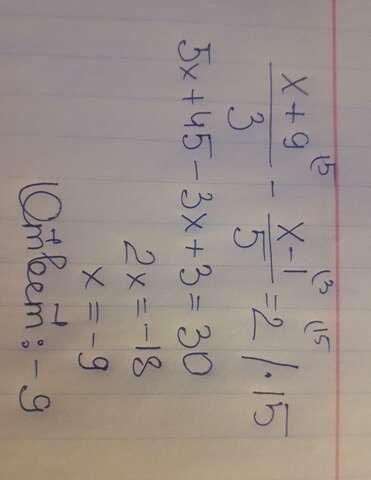 x+9/3 (5 - x-1/5 (3 = 2 (15 /·15
5x+45-3x+3=30
2x=-18
x=-9
Ответ: -9